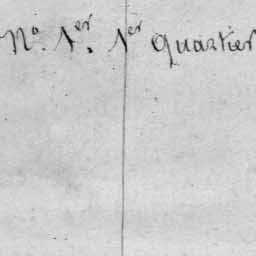 No. 1er. 1er Quartier